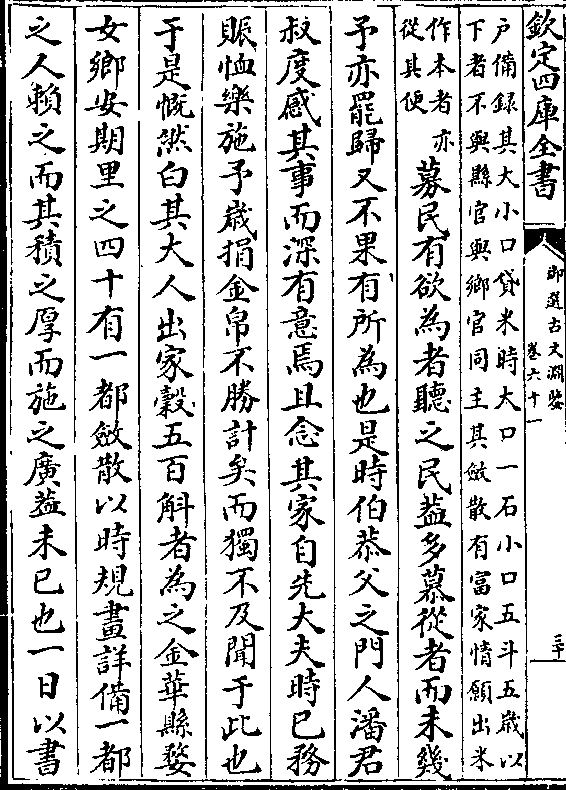 欽定四庫全書
御選古文淵鑒
卷六十一
三十
户備録其大小口貸米時大口一石小口五斗五歳以
下者不與縣官與鄉官同主其斂散有富家情願出米
作本者亦
從其便
募民有欲為者聽之民葢多慕從者而未幾
予亦罷歸又不果有所為也是時伯恭父之門人潘君
叔度感其事而深有意焉且念其家自先大夫時已務
賑恤樂施予歳捐金帛不勝計矣而獨不及聞于此也
于是慨然白其大人出家穀五百斛者為之金華縣婺
女鄉安期里之四十有一都斂散以時規畫詳備一都
之人賴之而其積之厚而施之廣葢未已也一日以書